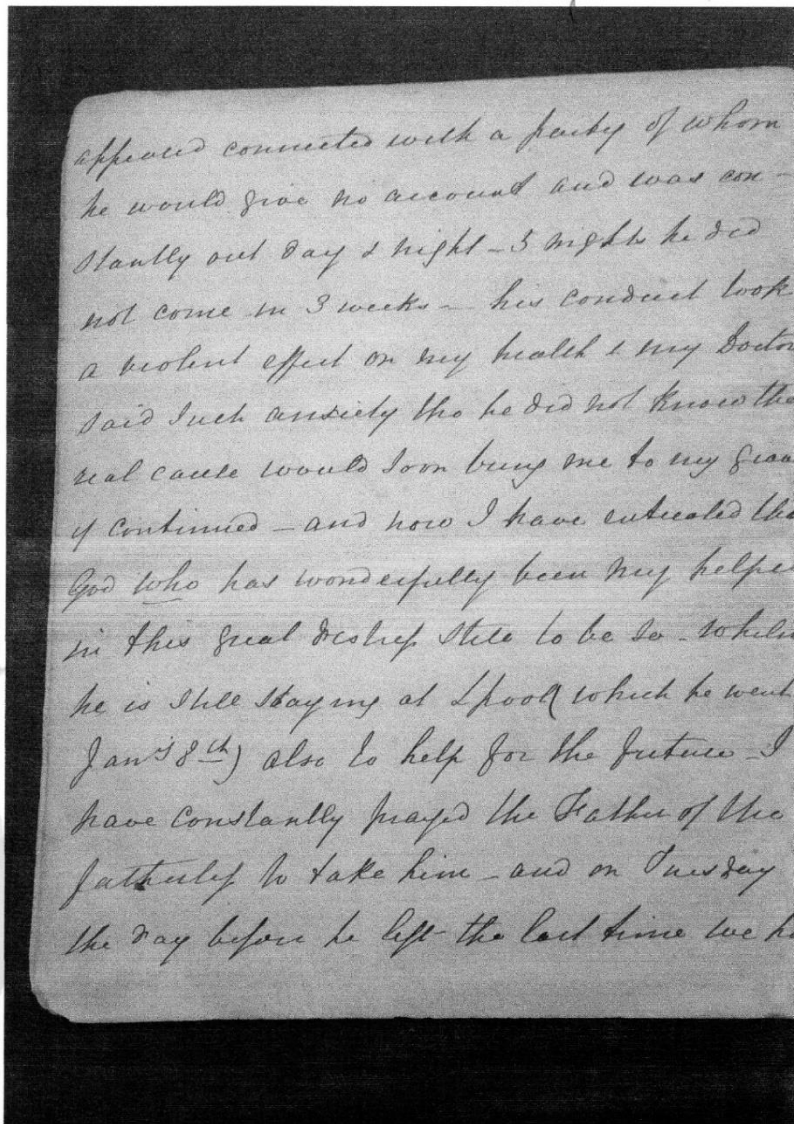 appeared connected with a party of whom
he would give no account and was con-
stantly out day & night - 5 nights he did
not come in 3 weeks - his conduct took
a violent effect on my health & my Doctor
said such anxiety tho he did not know the
real cause would soon bring me to my grave
if continued - and now I have intreated the
God who has wonderfully been my helper
in this great distress still to be so - while
he is still staying at Lpool (which he went
Jany 8th) also to help for the future - I
have constantly prayed the Father of the
fatherless to take him - and on Tuesday
the day before he left the last time we